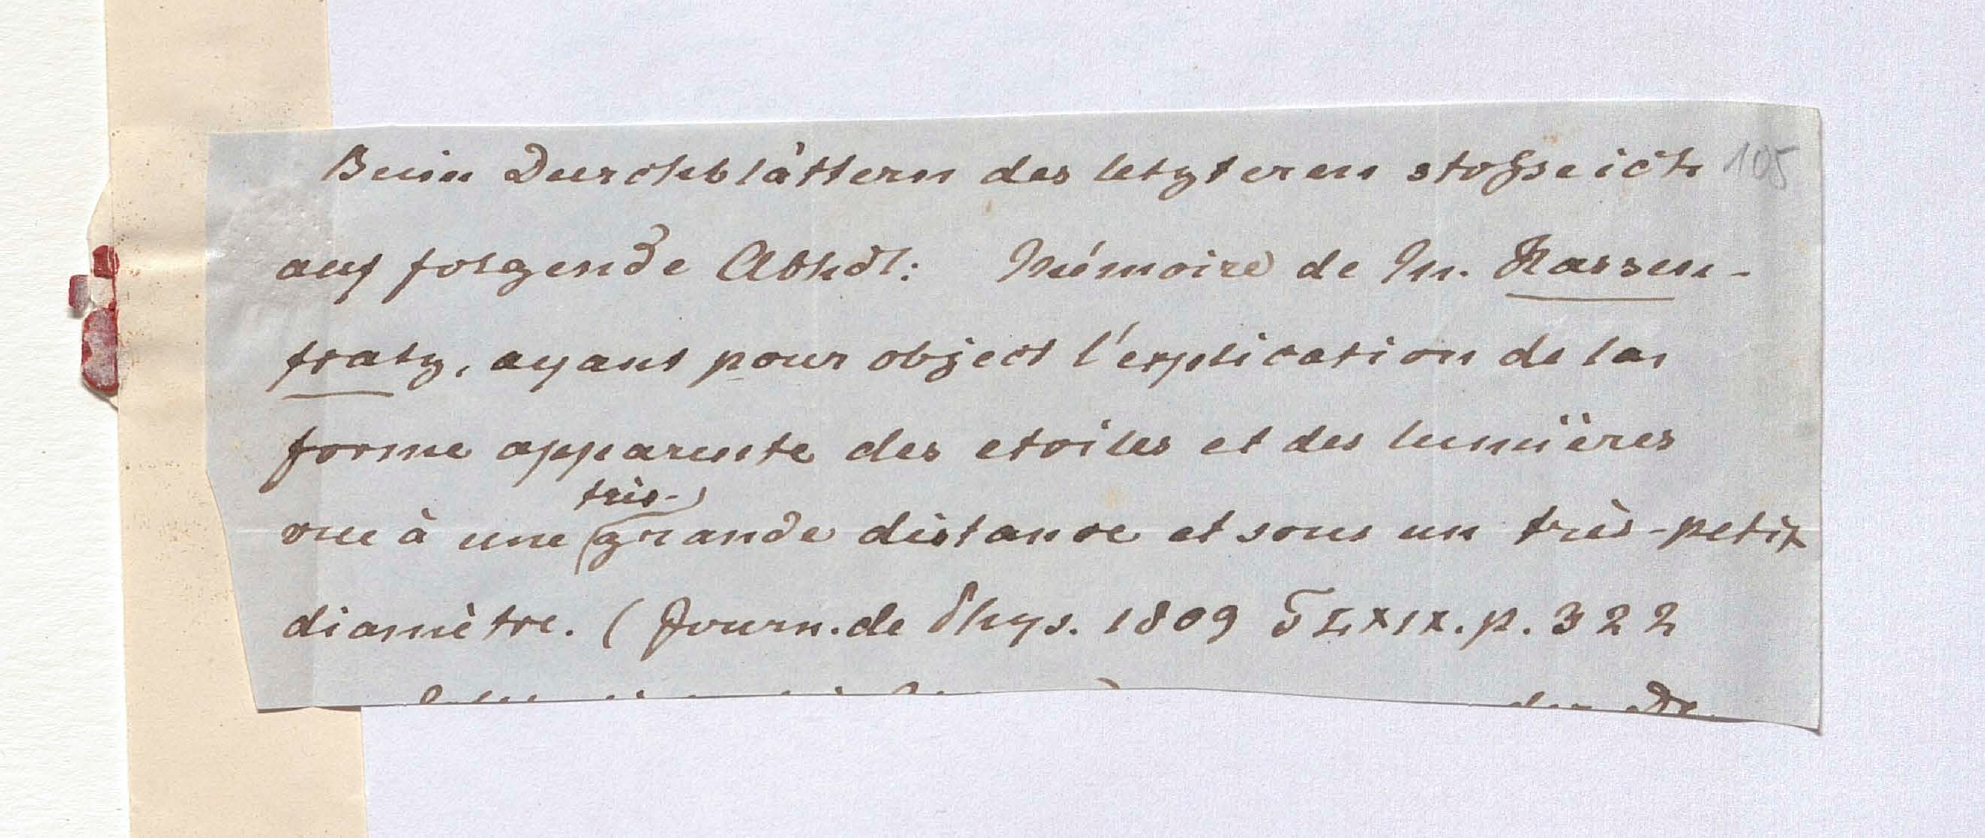 Beim Durchblättern des letzteren stoße ich 105
auf folgende Abhdl: Mémoire de M. Hassen-
fratz, ayant pour object l'explication de la
forme apparente des etoiles et des lumières
très-
vue à une grande distance et sous un très-petit
diamètre. (Journ. de Phys. 1809 T LXIX. p. 322